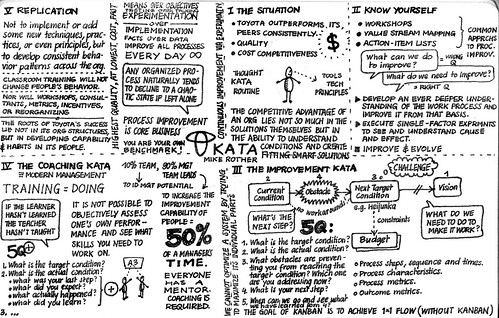 V REPLICATION
Not to implement or add
some new techniques, prac-
tices, or even principles, but
to develop consistent beha-
vior patterns across the org.
CLASSROOM TRAINING WILL NOT
CHANGE PEOPLE'S BEHAVIOR.
NOR WILL WORKSHOPS, CONSUL-
TANTS, METRICS, INCENTIVES,
OR REORGANIZING
THE ROOTS OF TOYOTA'S SUCCESS
LIE NOT IN ITS ORG STRUCTURES,
BUT IN DEVELOPING CAPABILITY
& HABITS IN ITS PEOPLE.
HIGHEST QUALITY, AT LOWEST COST, FAST
MEANS OUR OBJECTIVES
EXPERIMENTATION
OVER
IMPLEMENTATION
FACTS OVER DATA
IMPROVE ALL PROCESSES
EVERY DAY
ANY ORGANIZED PRO-
CESS NATURALLY TENDS
TO DECLINE TO A CHAO-
TIC STATE IF LEFT ALONE
PROCESS IMPROVEMENT
IS CORE BUSINESS
YOU ARE YOUR OWN
BENCHMARK!
CONTINUOUS IMPROVEMENT VIA EXPERIMENTS
I THE SITUATION
• TOYOTA OUTPERFORMS ITS
PEERS CONSISTENTLY.
• QUALITY
• COST COMPETITIVENESS
$
THOUGHT
ROUTINE
KATA
TOOLS
TECH
PRINCIPLES
THE COMPETITIVE ADVANTAGE OF
AN ORG LIES NOT SO MUCH IN THE
SOLUTIONS THEMSELVES BUT IN
THE ABILITY TO UNDERSTAND
CONDITIONS AND CREATE
FITTING SMART SOLUTIONS
II KNOW YOURSELF
• WORKSHOPS
• VALUE STREAM MAPPING
• ACTION-ITEM LISTS
COMMON
APPROACHES
TO PROC.
IMPROV.
What can we do
to improve?
= WRONG Q
What do we need to improve?
= RIGHT Q
DEVELOP AN EVER DEEPER UNDER-
STANDING OF THE WORK PROCESS AND
IMPROVE IT FROM THAT BASIS.
EXECUTE SINGLE-FACTOR EXPERIMENTS
TO SEE AND UNDERSTAND CAUSE
AND EFFECT.
IMPROVE & EVOLVE
KATA
MIKE ROTHER
IV THE COACHING KATA
= MODERN MANAGEMENT
TRAINING = DOING
IF THE LEARNER
HASN'T LEARNED
THE TEACHER
HASN'T TAUGHT
5Q+
IT IS NOT POSSIBLE TO
OBJECTIVELY ASSESS
ONE'S OWN PERFOR-
MANCE AND SEE WHAT
SKILLS YOU NEED TO
WORK ON.
1. What is the target condition?
2. What is the actual condition?
• what was your last step?
• what did you expect?
• what actually happened?
• what did you learn?
3. ...
A3
10% TEAM,
80% MGT
TEAM LEADS
TO ID MGT POTENTIAL
TO INCREASE THE
IMPROVEMENT
CAPABILITY OF
PEOPLE:
50%
OF A MANAGERS
TIME.
EVERYONE
HAS A
MENTOR.
COACHING IS
REQUIRED.
WE CANNOT OPTIMIZE A SYSTEM BY TRYING TO
MAXIMIZE ITS INDIVIDUAL PARTS
III THE IMPROVEMENT KATA
CHALLENGE
2
Current
Condition
4
Obstacle
no workarounds!
3
Next Target
Condition
e.g. Heijunka
1
Vision
constraints
Budget
WHAT'S THE
NEXT STEP?
WHAT DO WE
NEED TO DO TO
MAKE IT WORK?
5Q:
1. What is the target condition?
2. What is the actual condition?
3. What obstacles are preven-
ting you from reaching the
target condition? Which one
are you addressing now?
4. What is your next step?
5. When can we go and see what
we have learned from 4?
• Process steps, sequence and times.
• Process characteristics.
• Process metrics.
• Outcome metrics.
THE GOAL OF KANBAN IS TO ACHIEVE 1×1 FLOW (WITHOUT KANBAN)